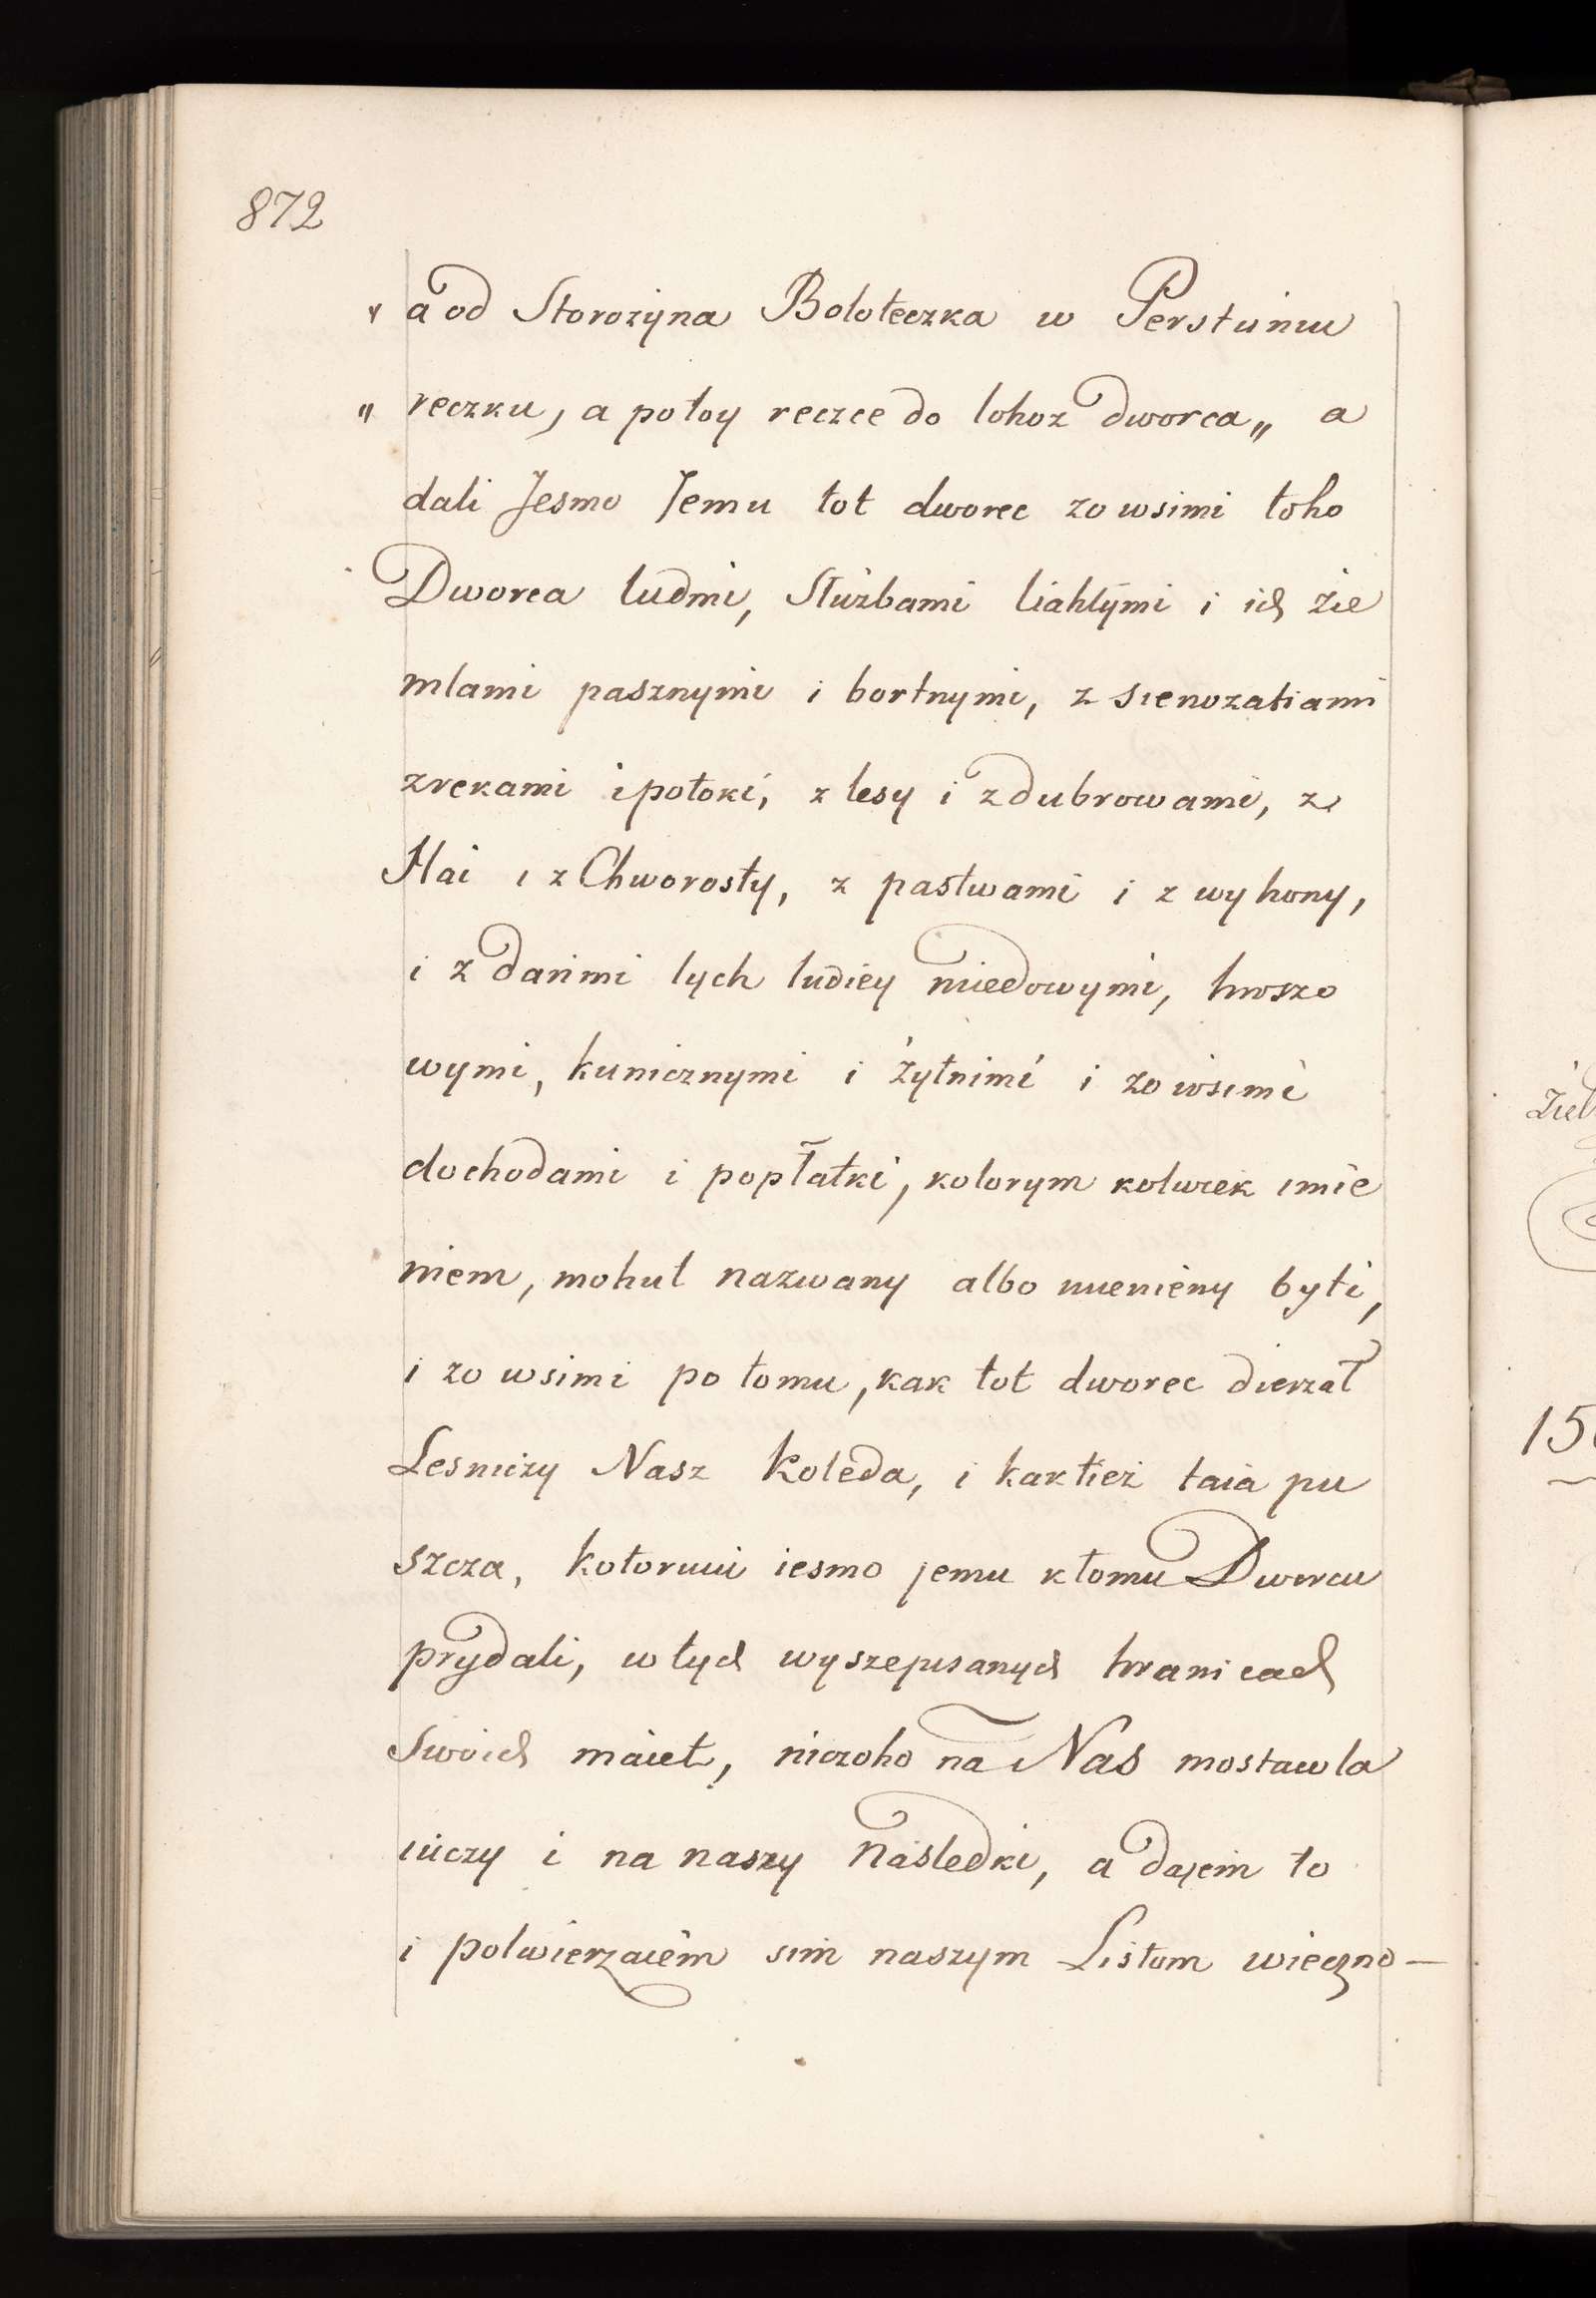 872
„ a od Storozyna Bołoteczka w Perstuniu
„ reczku, a potoy reczce do tohoz dworca „ a
dali Jesmo Jemu tot dworec zo wsimi toho
Dworca ludmi, Służbami tiahłymi i ich zie
mlami pasznymi i bortnymi, z sienozatiami
z rekami i potoki, z lesy i z dubrowami, z
Hai i z Chworosty, z pastwami i z wyhony,
i z dańmi tych ludiey miedowymi, hroszo
wymi, kunicznymi i żytnimi i zo wsimi
dochodami i popłatki, kotorym kolwiek imie
niem, mohut nazwany albo mienieny byti,
i zo wsimi po tomu, kak tot dworec dierzał
Lesniczy Nasz Koleda, i kak tież taia pu
szcza, kotoruiu iesmo jemu k tomu Dworcu
prydali, w tych wyszepisanych hranicach
Swoich maiet, niczoho na Nas nostawla
iuczy i na naszy następki, a dajem to
i potwierzaiem sim naszym Listom wieczno —
Ziel
15